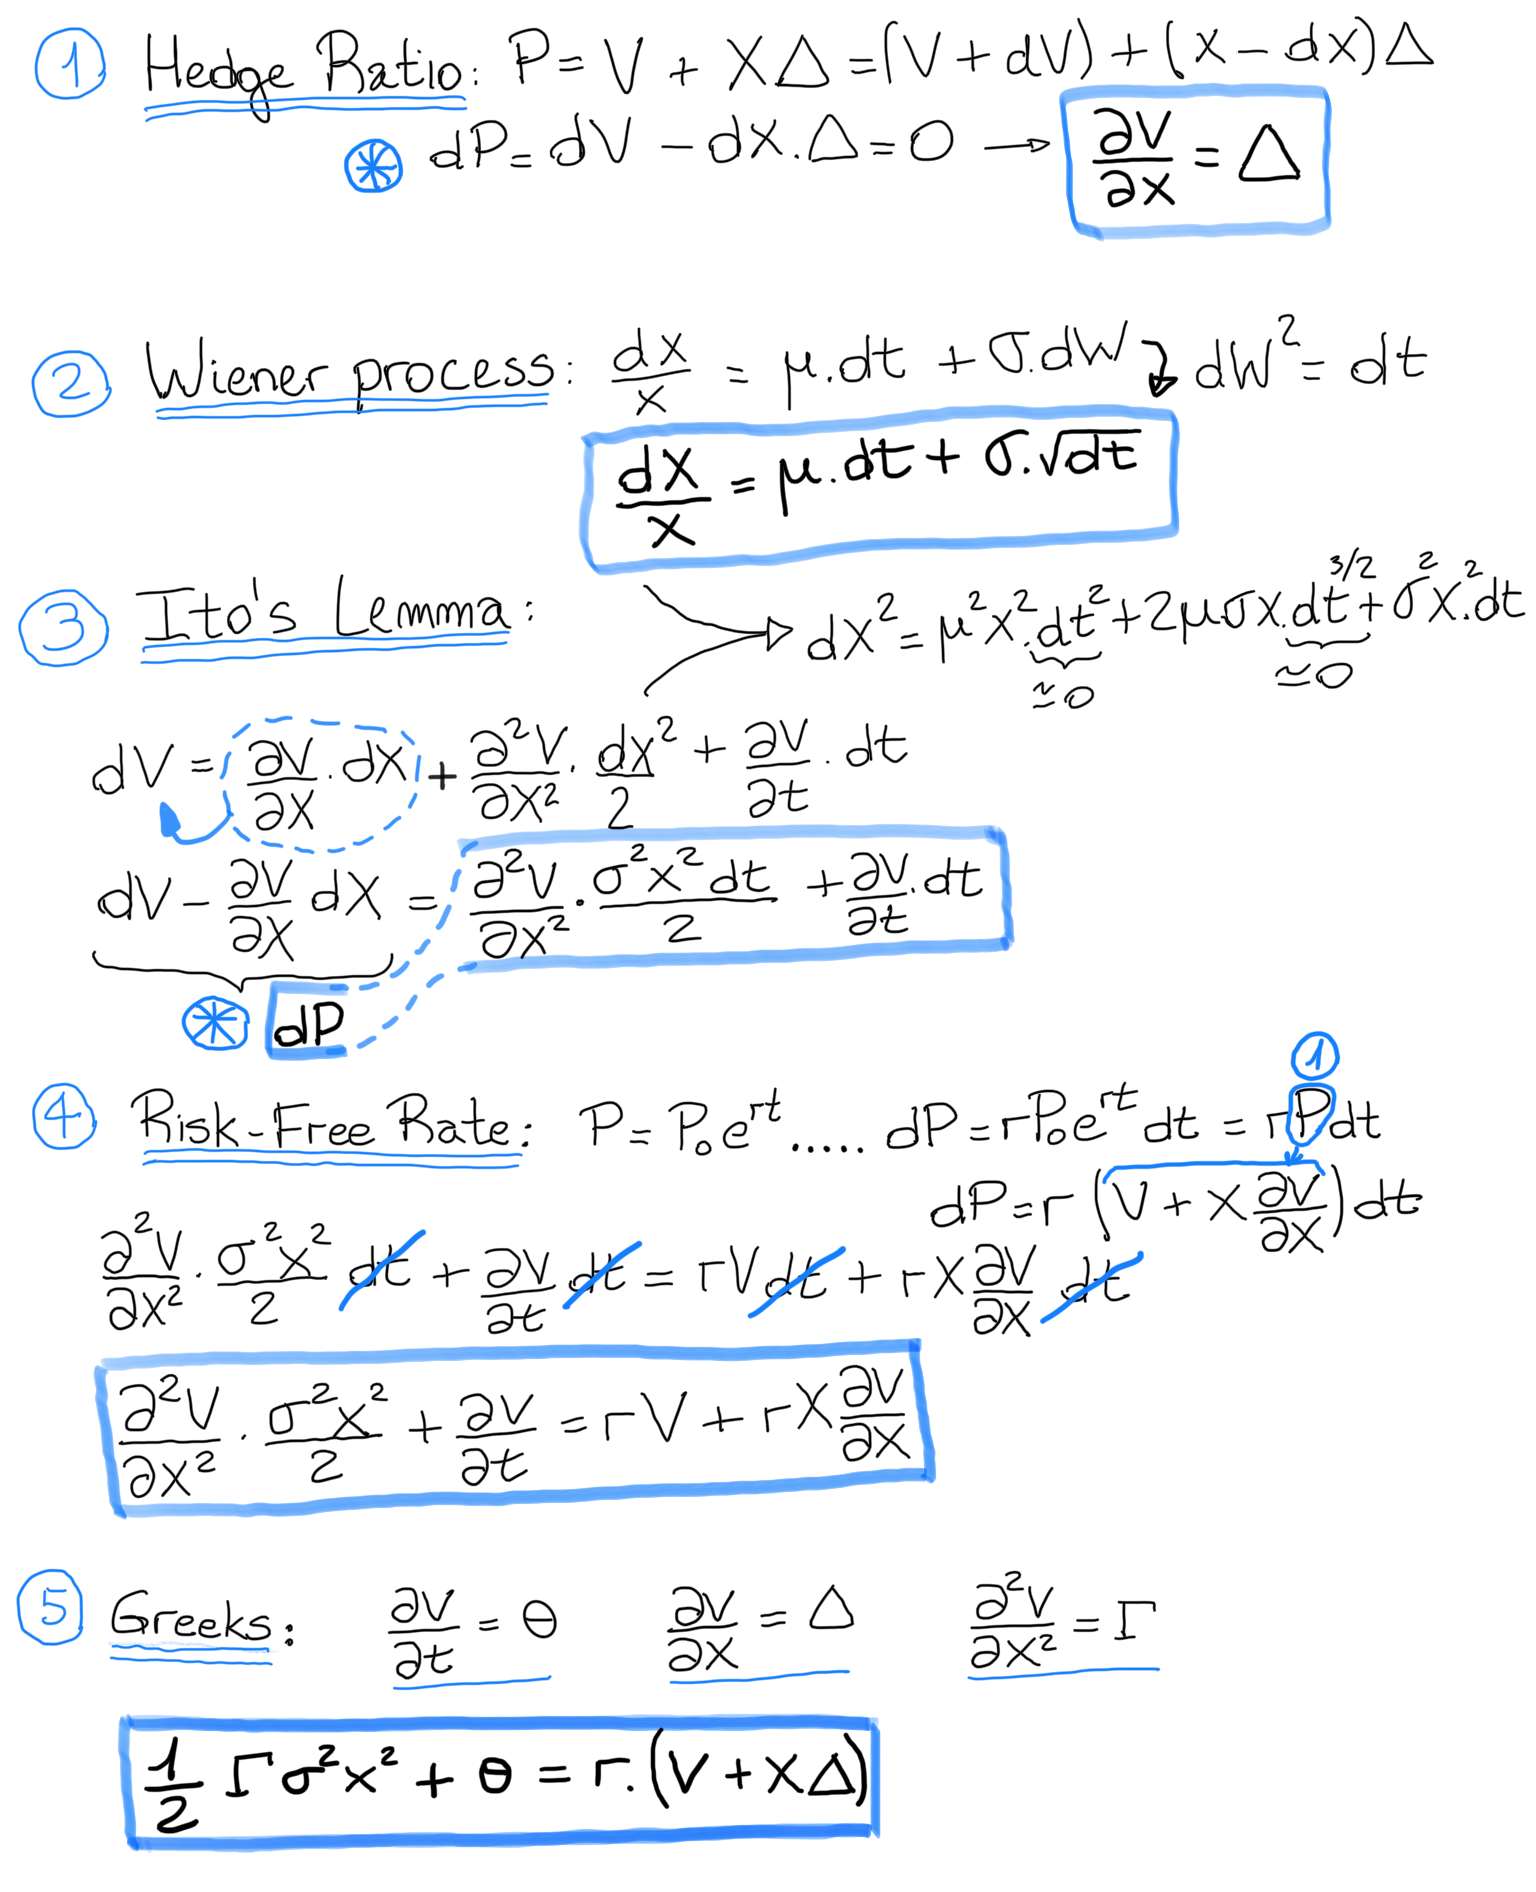 ① Hedge Ratio: P = V + XΔ = (V + dV) + (X − dX)Δ
⊛ dP = dV − dX.Δ = 0 → ∂V/∂X = Δ
② Wiener process: dX/X = μ.dt + σ.dW ↴ dW² = dt
dX/X = μ.dt + σ.√dt
③ Ito's Lemma: → dX² = μ²X².dt² + 2μσX.dt^3/2 + σ²X².dt
≃0 ≃0
dV = ∂V/∂X . dX + ∂²V/∂X² . dX²/2 + ∂V/∂t . dt
dV − ∂V/∂X dX = ∂²V/∂X² . σ²X²dt/2 + ∂V/∂t . dt
⊛ dP
①
④ Risk-Free Rate: P = P₀e^rt ..... dP = rP₀e^rt dt = rPdt
dP = r (V + X ∂V/∂X) dt
∂²V/∂X² . σ²X²/2 dt + ∂V/∂t dt = rVdt + rX ∂V/∂X dt
∂²V/∂X² . σ²X²/2 + ∂V/∂t = rV + rX ∂V/∂X
⑤ Greeks: ∂V/∂t = Θ ∂V/∂X = Δ ∂²V/∂X² = Γ
1/2 Γσ²X² + Θ = r.(V + XΔ)